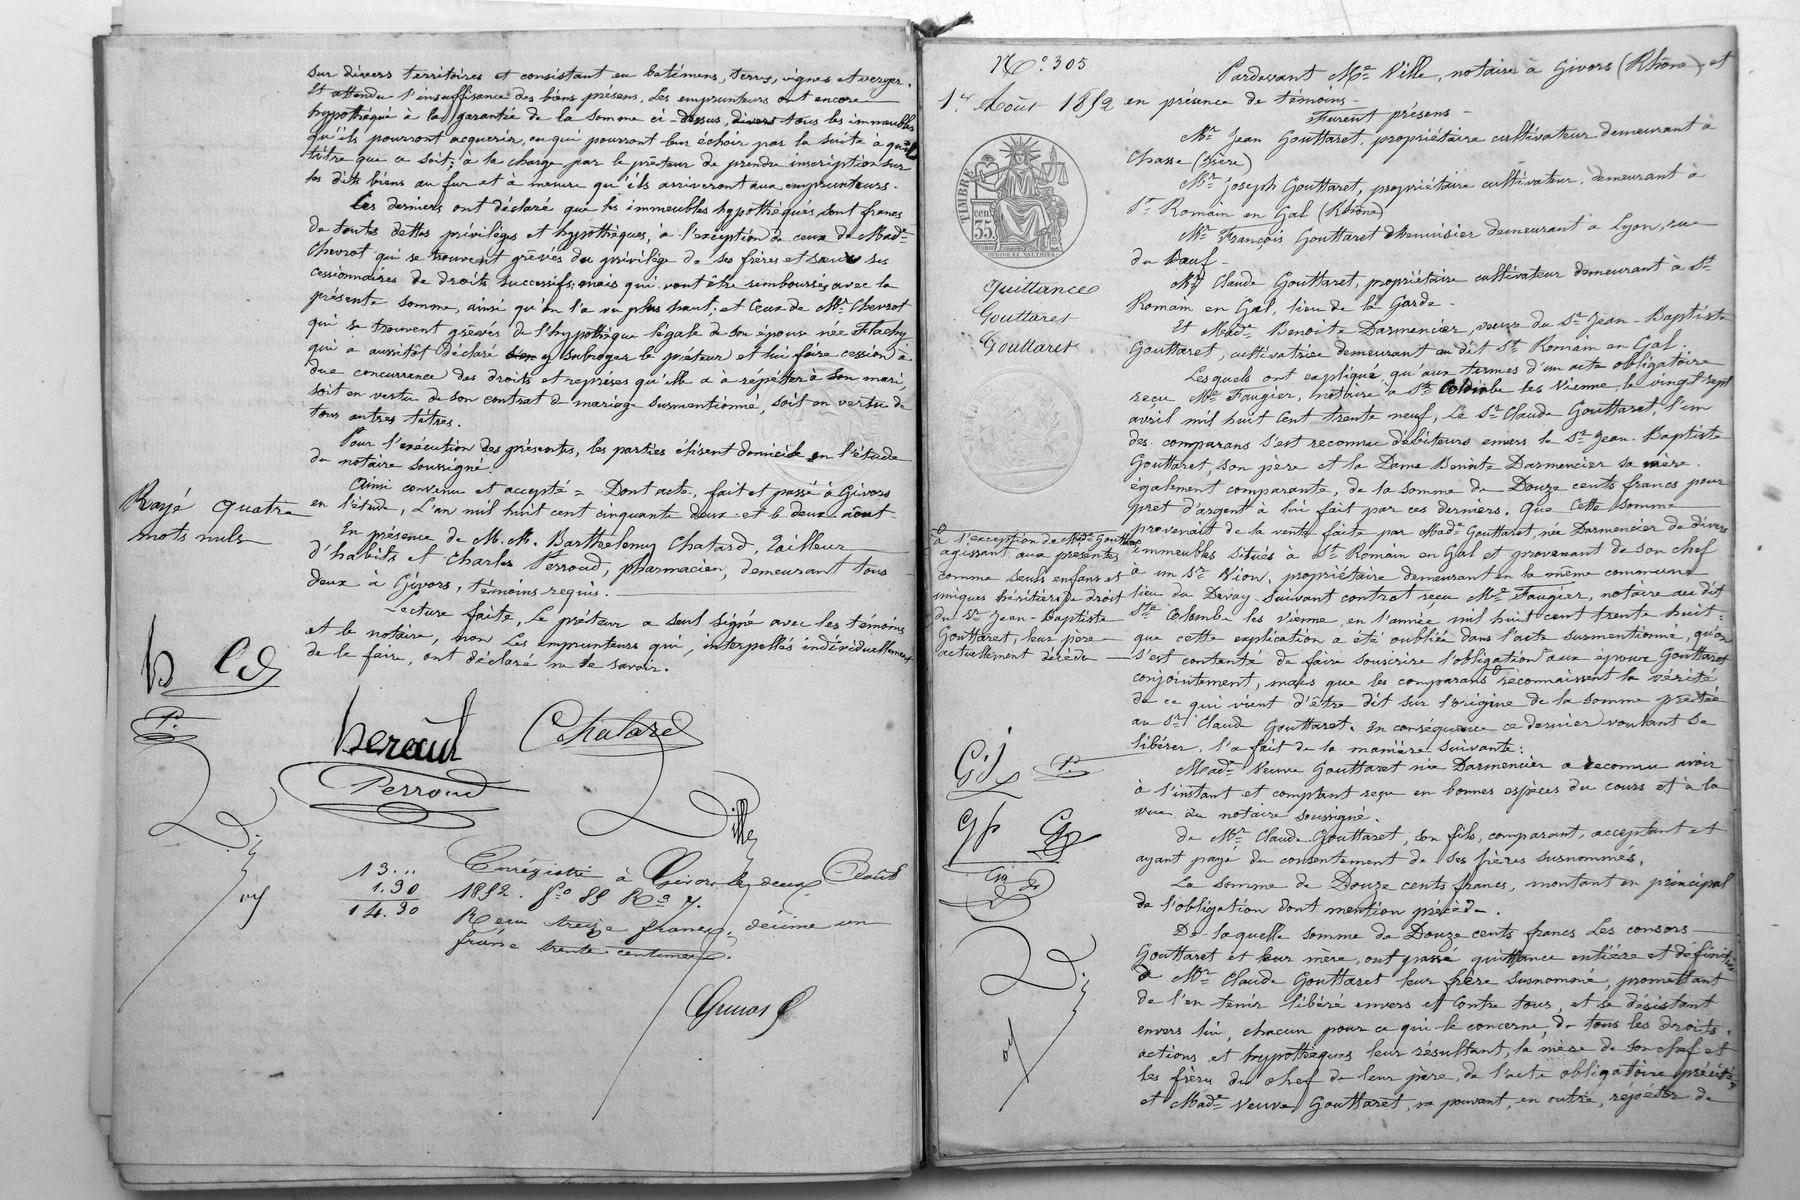 sur divers territoires et consistant en batimens, terres, vignes et verger.
Et attendu l'insuffisance des biens présens, les emprunteurs ont encore
hypothéqué à la garantie de la somme ci-dessus, divers tous les immeubles
qu'ils pourront acquerir, ou qui pourront leur échoir par la suite à quel
titre que ce soit; à la charge par le prêteur de prendre inscription sur
les dits biens au fur et à mesure qu'ils arriveront aux emprunteurs.
Ces derniers ont déclaré que les immeubles hypothéqués sont francs
de toutes dettes priviléges et hypothèques, à l'exception de ceux de Made
Chevrot qui se trouvent grévés du privilége de ses frères et sœurs ses
cessionnaires de droits successifs, mais qui vont être remboursés avec la
présente somme, ainsi qu'on l'a vu plus haut, et ceux de Mr Chevrot
qui se trouvent grévés de l'hypothèque légale de son épouse née Flachy
qui a aussitôt déclaré y subroger le prêteur et lui faire cession à
due concurrence des droits et reprises qu'elle a à répéter à son mari,
soit en vertu de son contrat de mariage susmentionné, soit en vertu de
tous autres titres.
Pour l'exécution des présentes, les parties élisent domicile en l'étude
du notaire soussigné.
Ainsi convenu et accepté = Dont acte, fait et passé à Givors
en l'étude, L'an mil huit cent cinquante deux et le deux août
Rayé quatre
mots nuls
En présence de M.M. Barthélemy Chatard, Tailleur
d'habits, et Charles Perroud, pharmacien, demeurant tous
deux à Givors, témoins requis.
Lecture faite, Le prêteur a seul signé avec les témoins
et le notaire, non Les emprunteurs qui, interpellés individuellement
de le faire, ont déclaré ne le savoir.
Chatard
Perroud
Ville
13...
1.30
14.30
Enrégistré à Givors le deux Août
1852. fo 89 Ro 7.
Reçu treize francs, décime un
franc trente centimes.
No. 305
1er Août 1852
TIMBRE
35
Quittance
Gouttaret
Gouttaret
Pardevant Me Ville, notaire à Givors (Rhône) et
en présence de témoins
Furent présens
Mr Jean Gouttaret, propriétaire cultivateur demeurant à
Chasse (Isère)
Mr Joseph Gouttaret, propriétaire cultivateur, demeurant à
St Romain en Gal (Rhône)
Mr François Gouttaret Menuisier demeurant à Lyon, rue
du Bœuf.
Mr Claude Gouttaret, propriétaire cultivateur demeurant à St
Romain en Gal, lieu de la Garde.
Et Made Benoite Darmencier, veuve du Sr Jean-Baptiste
Gouttaret, cultivatrice demeurant au dit St Romain en Gal.
Lesquels ont expliqué qu'aux termes d'un acte obligatoire
reçu Me Faugier, notaire à Ste Colombe les Vienne, le vingt sept
avril mil huit cent trente neuf, Le Sr Claude Gouttaret, l'un
des comparans s'est reconnu débiteurs envers le Sr Jean-Baptiste
Gouttaret, son père et la Dame Benoite Darmencier sa mère.
également comparante, de la somme de Douze cents francs pour
prêt d'argent à lui fait par ces derniers. Que cette somme
provenait de la vente faite par Made Gouttaret, née Darmencier de divers
immeubles situés à St Romain en Gal et provenant de son chef
à un Sr Vion, propriétaire demeurant en la même commune
lieu du Devay suivant contrat reçu Me Faugier, notaire au dit
Ste Colombe les Vienne, en l'année mil huit cent trente huit:
que cette explication a été oubliée dans l'acte susmentionné, qu'on
s'est contenté de faire souscrire l'obligation aux époux Gouttaret
conjointement, mais que les comparans reconnaissent la vérité
de ce qui vient d'être dit sur l'origine de la somme prêtée
au Sr Claude Gouttaret. En conséquence ce dernier voulant se
libérer, l'a fait de la manière suivante:
à l'exception de Made Gouttaret
agissant aux présentes
comme seuls enfans et
uniques héritiers de droit
du Sr Jean-Baptiste
Gouttaret, leur père
actuellement décédé
Made Veuve Gouttaret née Darmencier a reconnu avoir
à l'instant et comptant reçu en bonnes espèces du cours et à la
vue du notaire soussigné.
De Mr Claude Gouttaret, son fils, comparant, acceptant et
ayant payé du consentement de ses frères susnommés,
La somme de Douze cents francs, montant en principal
de l'obligation dont mention précède.
De laquelle somme de Douze cents francs Les consors
Gouttaret et leur mère, ont passé quittance entière et définitive
à Mr Claude Gouttaret leur frère susnommé, promettant
de l'en tenir libéré envers et contre tous, et se désistant
envers lui, chacun pour ce qui le concerne, de tous les droits,
actions et hypothèques leur résultant, la mère de son chef et
les frères du chef de leur père, de l'acte obligatoire précité,
et Made Veuve Gouttaret, ne pouvant, en outre, répéter de